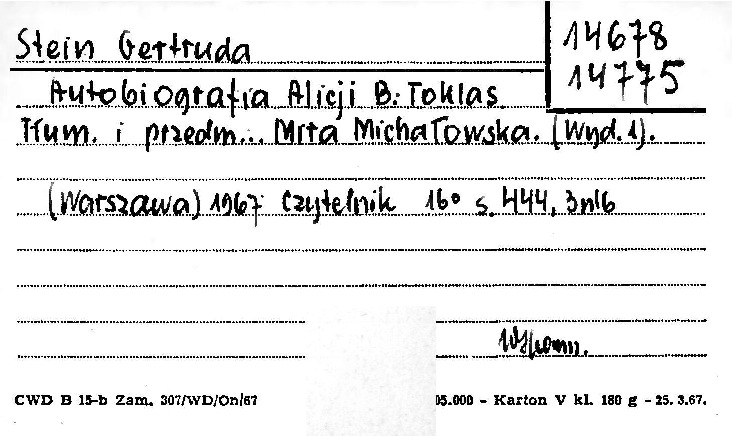 Stein Gertruda
14678
14775
Autobiografia Alicji B. Toklas
Tłum. i przedm... Mira Michałowska. (Wyd. 1).
(Warszawa) 1967 Czytelnik 16° s. 444, 3nlb
Wspomn.
CWD B 15-b Zam. 307/WD/On/67
05.000 - Karton V kl. 180 g - 25. 3.67.